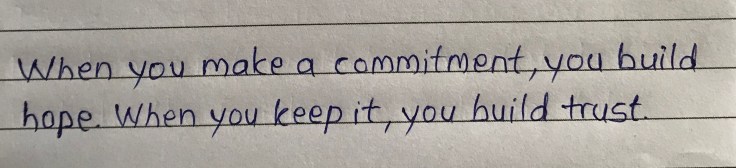 When you make a commitment, you build
hope. When you keep it, you build trust.